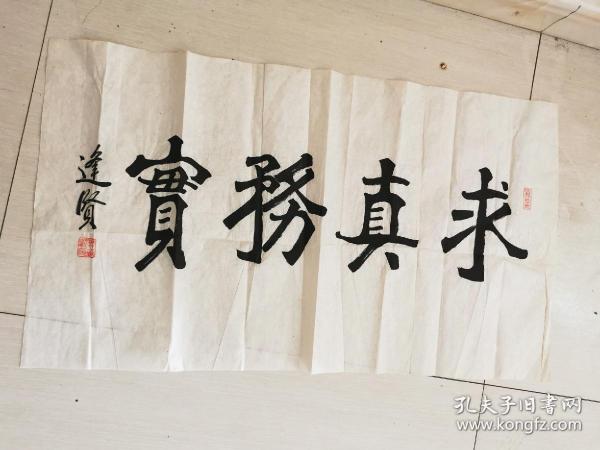 求真務實
逢賢
孔夫子旧书网
www.kongfz.com